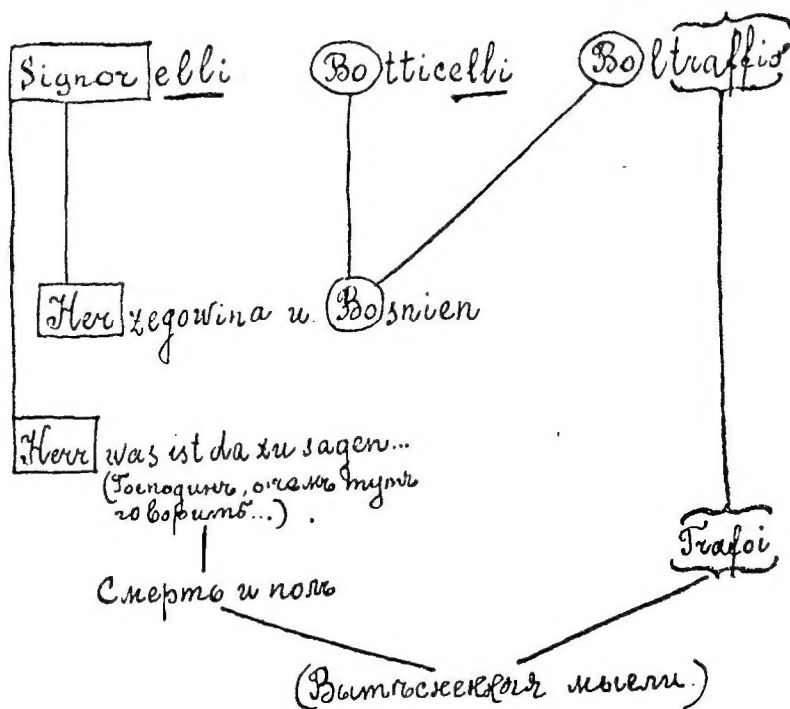 Signorelli Botticelli Boltraffio
Herzegowina u. Bosnien
Herr was ist da zu sagen...
(Господинъ, о чемъ тутъ
говорить...).
Trafoi
Смерть и полъ
(Вытѣсненныя мысли.)